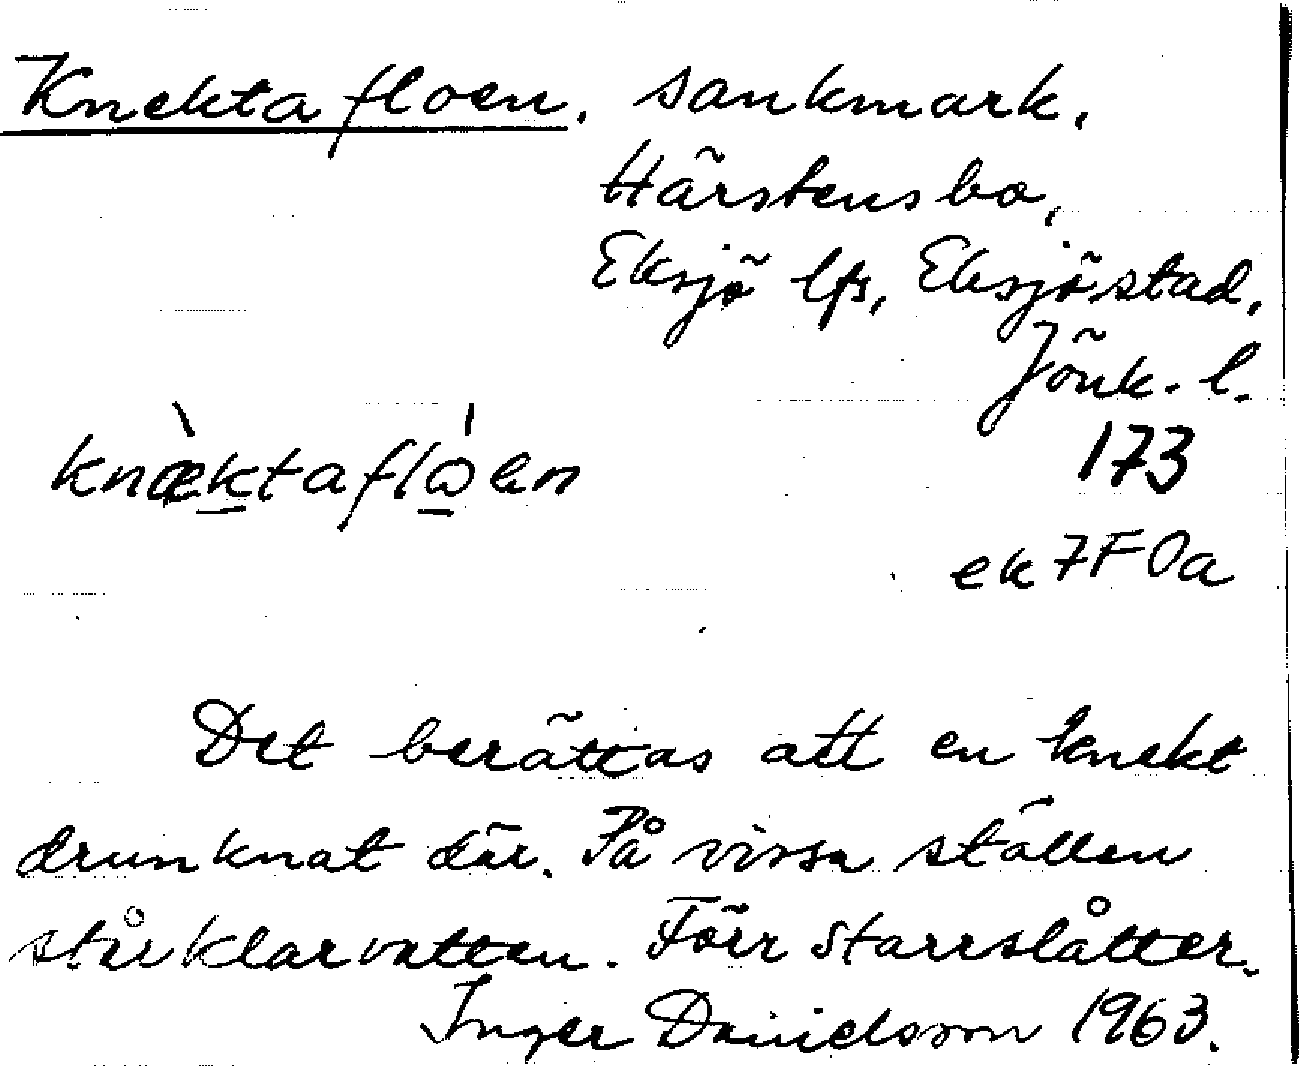 Knektafloen. sankmark.
Härstensbo,
Eksjö lfs, Eksjö stad,
Jönk. l.
knæ̀ktaflω̇en
173
ek 7F0a
Det berättas att en knekt
drunknat där. På vissa ställen
står klarvatten. Förr starrslåtter.
Inger Danielsson 1963.